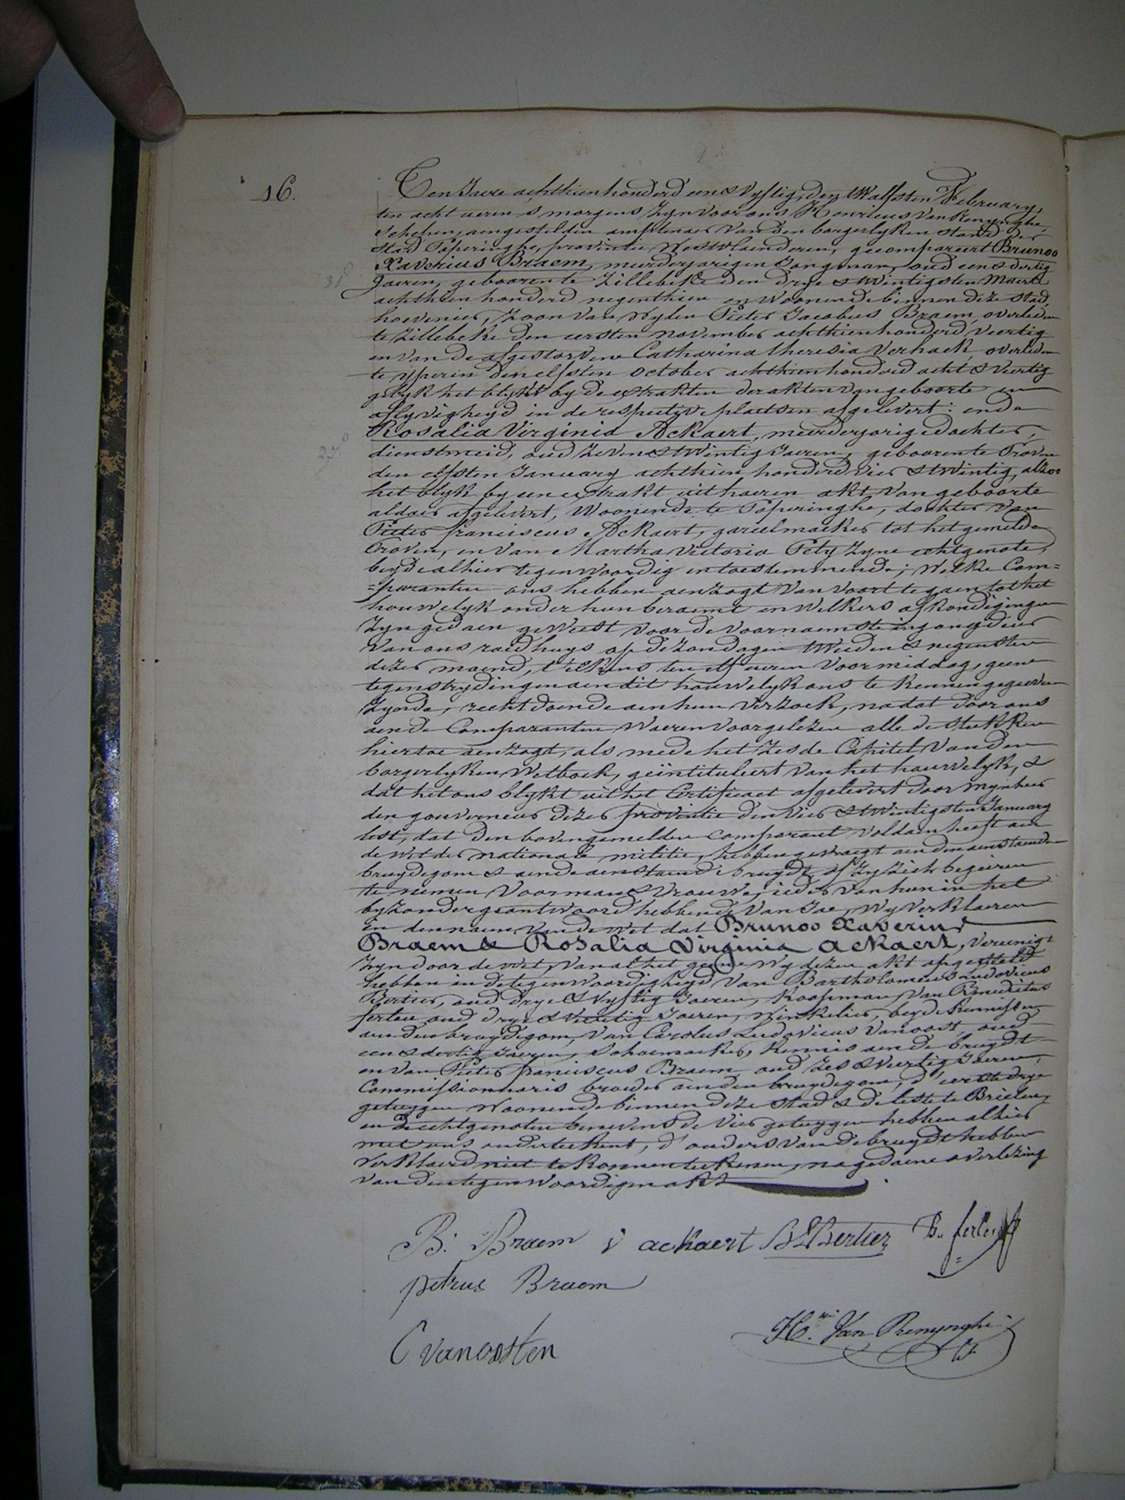 16.
Ten Jare achthien honderd een & vyftig, den twalfsten February,
ten acht ueren 's morgens zyn voor ons Henricus Van Renynghe,
Schepen, aengestelden amptenaer van den borgerlyken stand der
Stad Poperinghe, provintie Westvlaenderen, gecompareert Brunoo
Xaverius Braem, meerderjarigen Jongman, oud een & dertig
Jaeren, geboren te Zillebeke den drye & twintigsten Maerte
achthien honderd negenthien en woonende binnen deze Stad,
hovenier, Zoon van wylen Pieter Jacobus Braem, overleden
te Zillebeke den eersten november achthien honderd veertig
en van de afgestorvene Catharina theresia Verhack overleden
te yperen den elfsten october achthien honderd acht & veertig
gelyk het blykt by de extrakten der akten van geboorte en
aflyvigheyd in de respective plaetsen afgelevert: ende
Rosalia Virginia Ackaert, meerderjarige dochter,
dienstmeid, oud zeven & twintig Jaeren, geboren te Proven
den elfsten January achthien honderd vier & twintig, alzoo
het blyk by een extrakt uit haeren akt van geboorte
aldaer afgelevert, woonende te Poperinghe, dochter van
Pieter franciscus Ackaert, gareelmaeker tot het gemelde
Proven, en van Martha Victoria Pety zyne echtgenote,
beyde alhier tegenwoordig en toestemmende; welke Com=
=paranten ons hebben aenzogt van voort te gaen tot het
houwelyk onder hun beraemt en welkers afkondigingen
zyn gedaen geweest voor de voornaemste ingang deur
van ons raedhuys op de zondagen tweeden & negensten
dezer maend, t'elkens ten elf ueren voormiddag, geene
tegenstrydingen aen dit houwelyk ons te kennen gegeven
zynde, recht doende aen hun verzoek, nadat door ons
aen de Comparanten waeren voorgelezen alle de stukken
hiertoe aenzogt, als mede het zesde Capitel van den
borgerlyken Wetboek, geintituleert van het houwelyk, &
dat het ons blykt uit het Certificaet afgelevert door mynheer
den gouverneur dezer provintie den vier & twintigsten January
lest, dat den bovengemelden comparant voldaen heeft aen
de wet der nationale militie, hebben gevraegt aen den aenstaenden
bruydegom & aen de aenstaende bruydt, of zy zich begeeren
te nemen voor man & vrouwe; ieder van hun in het
byzonder geantwoord hebbende van Jae, wy verklaeren
in den naem van de wet dat Brunoo Xaverius
Braem & Rosalia Virginia Ackaert, vereenigt
zyn door de wet, van al het gene wy dezen akt opgesteld
hebben in de tegenwoordigheyd van Bartholomeus Ludovicus
Bertier, oud drye & vyftig Jaeren, koopman, van Benedictus
ferleu oud drye & veertig Jaeren, winkelier, beyde kennissen
aen den bruydegom, van Carolus Ludovicus Vanoost, oud
een & dertig Jaeren, schoenmaeker, kennis aen de bruydt
en van Pieter franciscus Braem oud zes & veertig Jaeren,
Commissionnaris broeder aen den bruydegom, d'eerste drye
getuygen woonende binnen deze Stad & de leste te Brielen,
en de echtgenoten benevens de vier getuygen hebben alhier
met ons onderteekent, d'ouders van de bruydt hebben
verklaerd niet te konnen teekenen, na gedaene overlezing
van den tegenwoordigen akt.
B. Braem v ackaert B L Bertier B. ferleu
petrus Braem
C vanoosten H. Van Renynghe